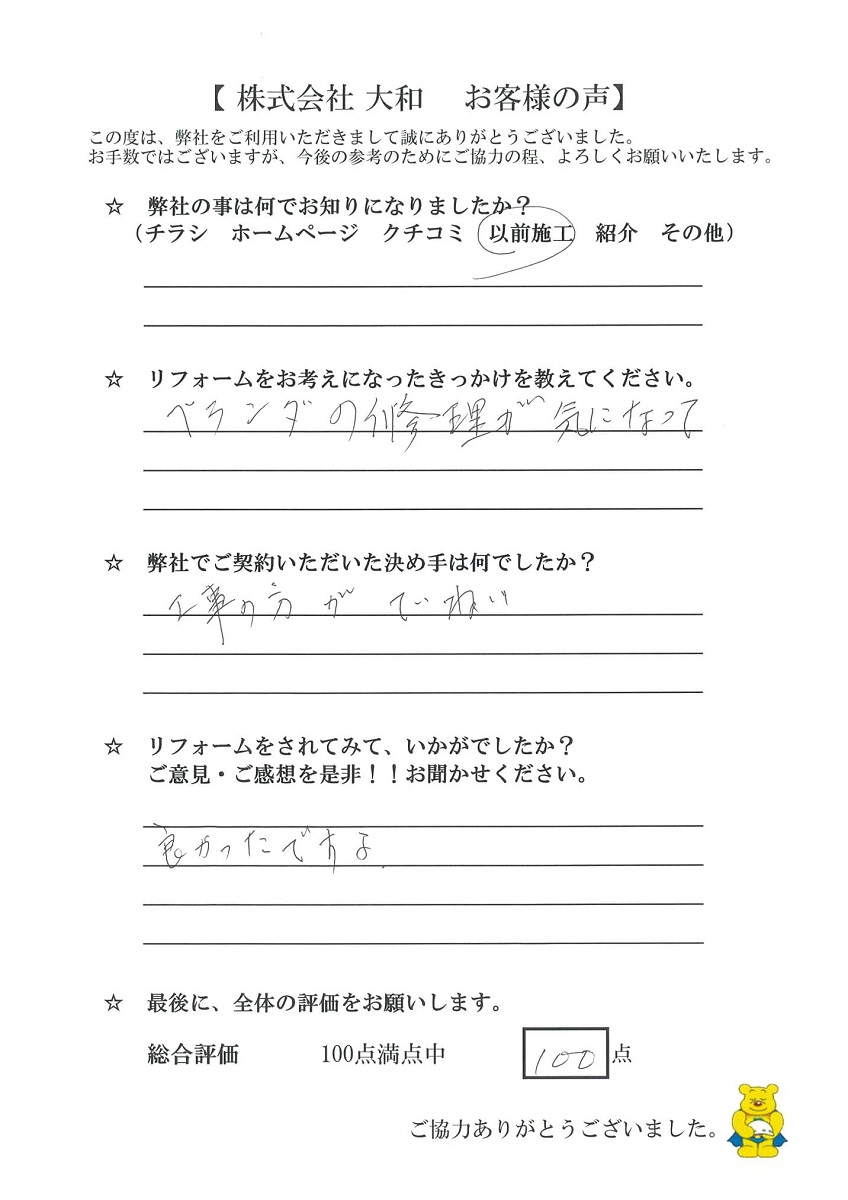 【 株式会社 大和　お客様の声】
この度は、弊社をご利用いただきまして誠にありがとうございました。
お手数ではございますが、今後の参考のためにご協力の程、よろしくお願いいたします。
☆　弊社の事は何でお知りになりましたか？
（チラシ　ホームページ　クチコミ　以前施工　紹介　その他）
☆　リフォームをお考えになったきっかけを教えてください。
ベランダの修理が気になって
☆　弊社でご契約いただいた決め手は何でしたか？
工事の方が ていねい
☆　リフォームをされてみて、いかがでしたか？
ご意見・ご感想を是非！！お聞かせください。
良かったですよ.
☆　最後に、全体の評価をお願いします。
総合評価　100点満点中　100 点
ご協力ありがとうございました。